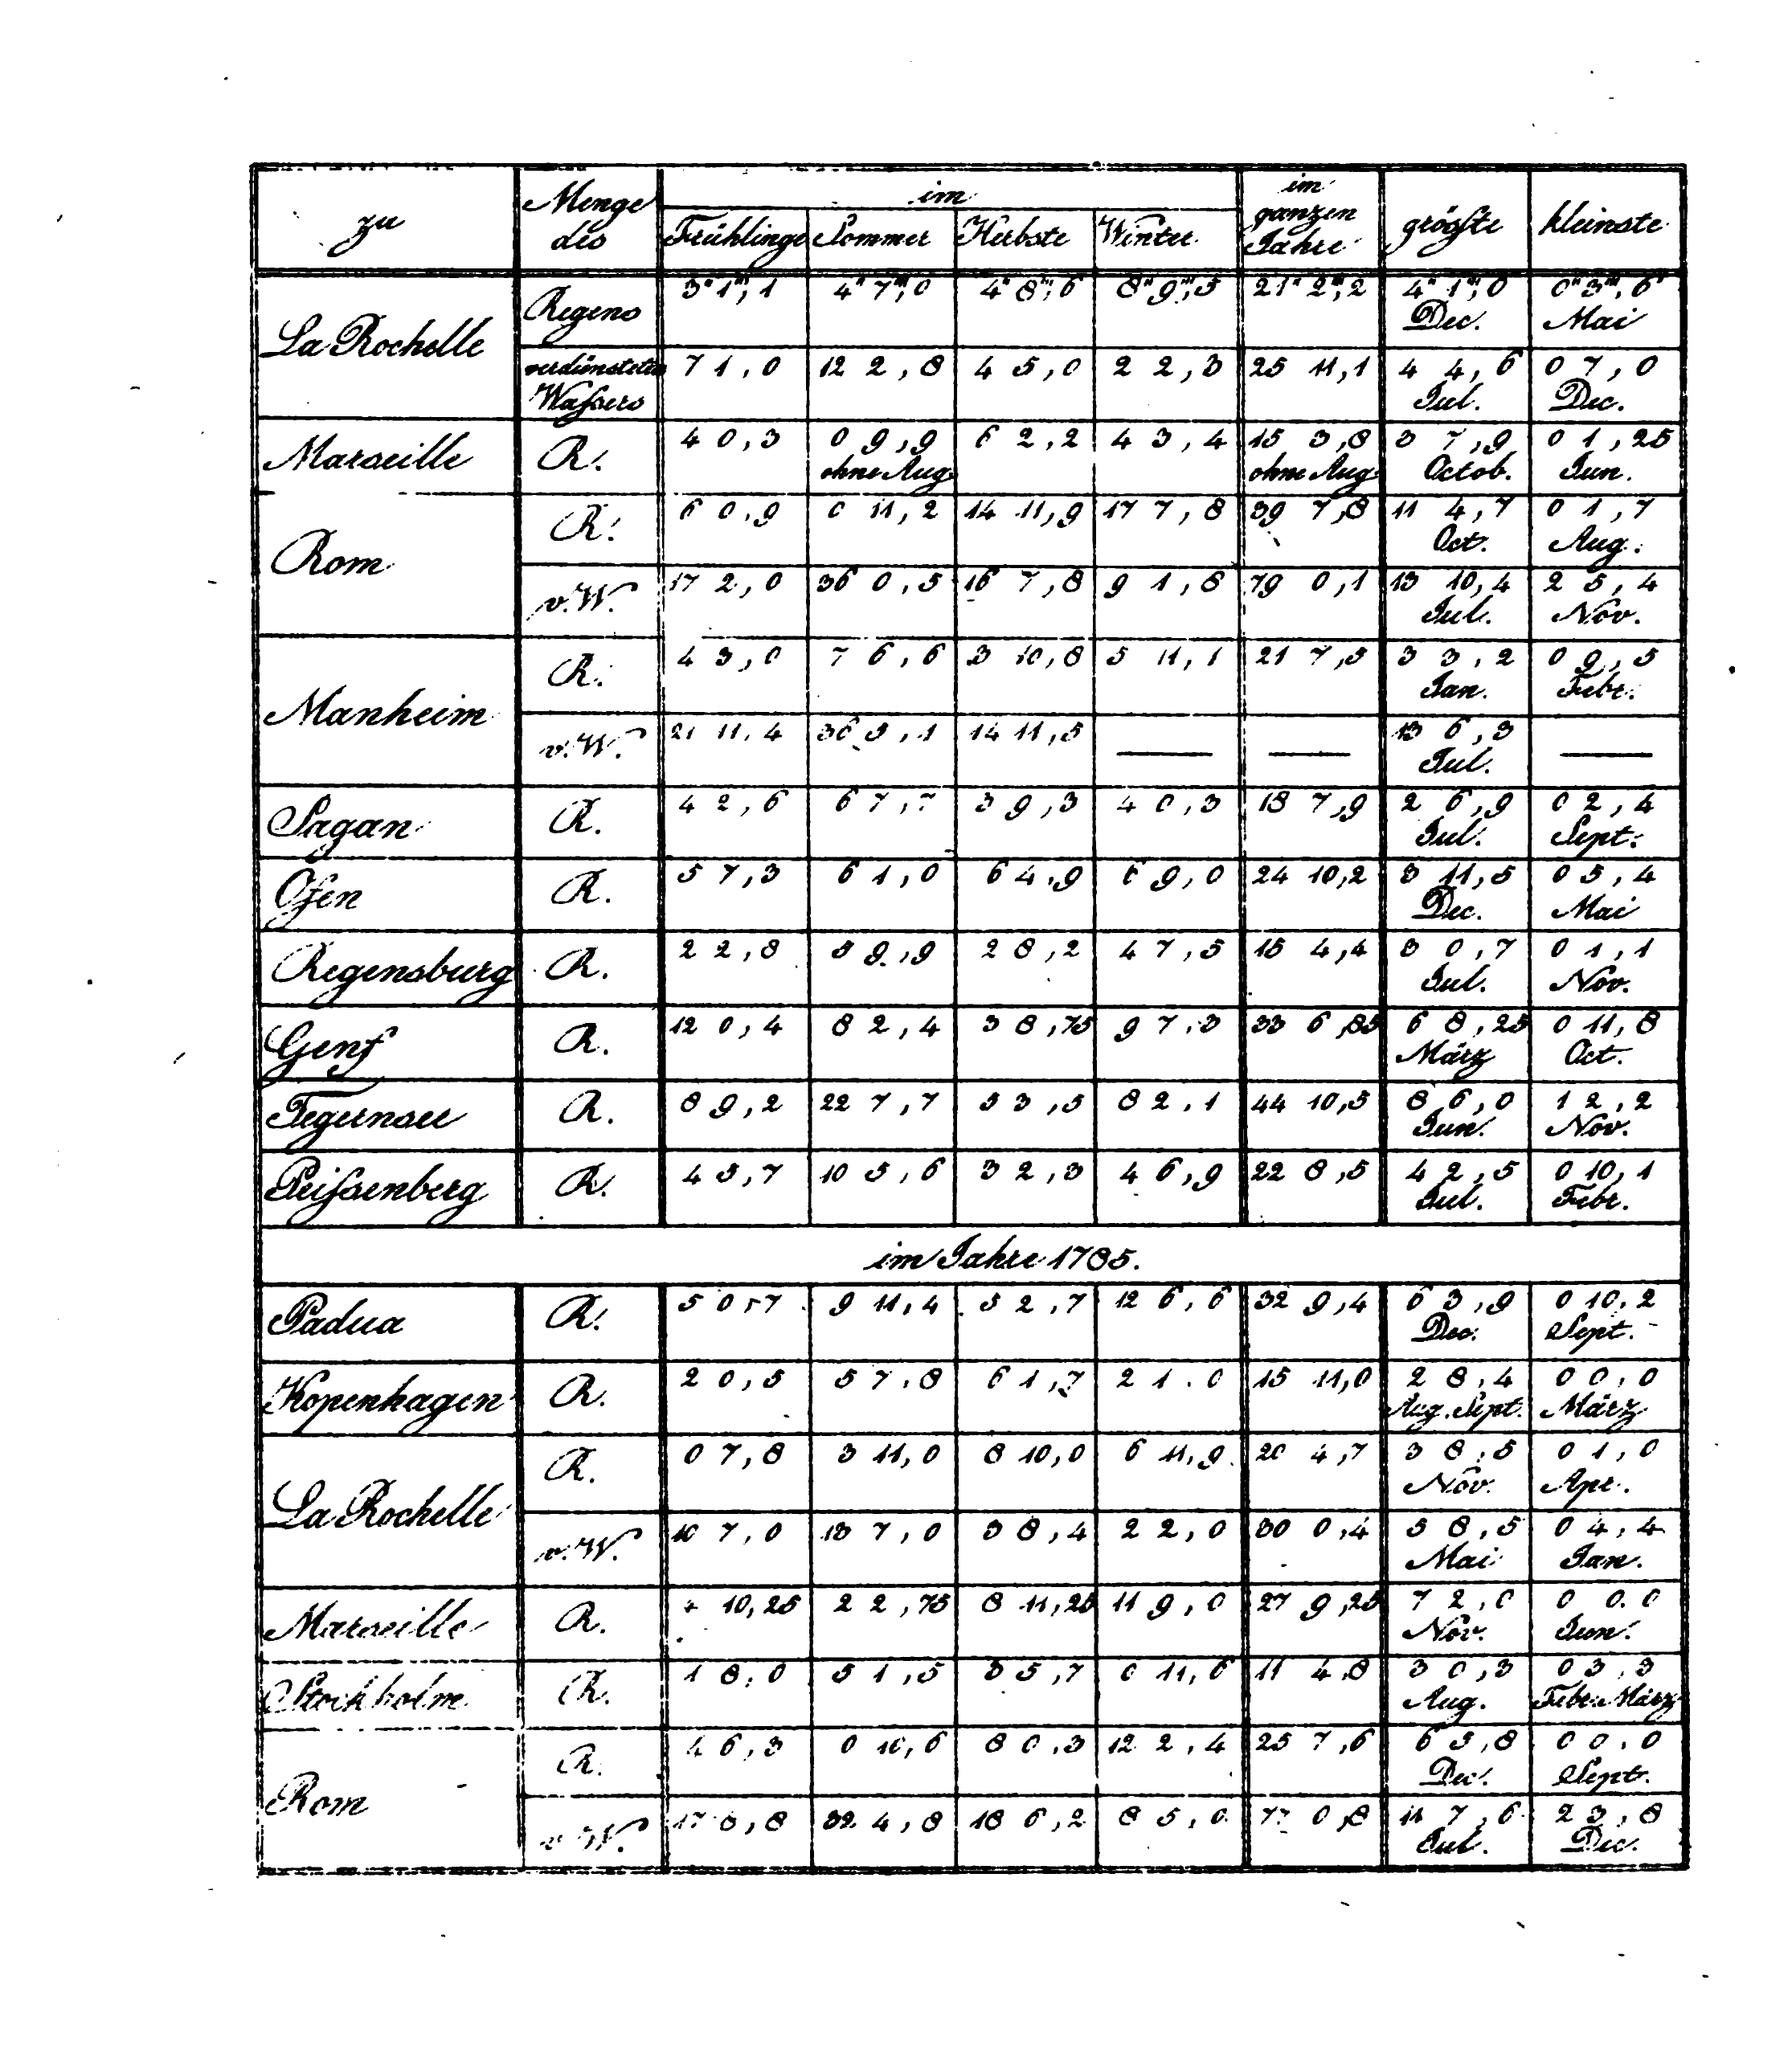 zu Menge des im Frühlinge Sommer Herbste Winter im ganzen Jahre größte kleinste
La Rochelle Regens 3" 1''',1 4" 7''',0 4" 8''',6 8" 9''',5 21" 2''',2 4" 1''',0 Dec. 0" 3''',6 Mai
verdünsteten Waſsers 7 1,0 12 2,8 4 5,0 2 2,3 25 11,1 4 4,6 Jul. 0 7,0 Dec.
Marseille R. 4 0,3 0 9,9 ohne Aug. 6 2,2 4 3,4 15 3,8 ohne Aug. 3 7,9 Octob. 0 1,25 Jun.
Rom R. 6 0,9 0 11,2 14 11,9 17 7,8 39 7,8 11 4,7 Oct. 0 1,7 Aug.
v. W. 17 2,0 36 0,5 16 7,8 9 1,8 79 0,1 13 10,4 Jul. 2 5,4 Nov.
Manheim R. 4 3,0 7 6,6 3 10,8 5 11,1 21 7,5 3 3,2 Jan. 0 9,5 Febr.
v. W. 21 11,4 36 5,1 14 11,5 — — 13 6,3 Jul. —
Sagan R. 4 2,6 6 7,7 3 9,3 4 0,3 18 7,9 2 6,9 Jul. 0 2,4 Sept.
Ofen R. 5 7,3 6 1,0 6 4,9 6 9,0 24 10,2 3 11,5 Dec. 0 5,4 Mai
Regensburg R. 2 2,8 5 9,9 2 8,2 4 7,5 15 4,4 3 0,7 Jul. 0 1,1 Nov.
Genf R. 12 0,4 8 2,4 3 8,75 9 7,3 33 6,85 6 8,25 März 0 11,8 Oct.
Tegernsee R. 8 9,2 22 7,7 5 3,5 8 2,1 44 10,5 8 6,0 Jun. 1 2,2 Nov.
Peiſsenberg R. 4 5,7 10 5,6 3 2,3 4 6,9 22 8,5 4 2,5 Jul. 0 10,1 Febr.
im Jahre 1785.
Padua R. 5 0,7 9 11,4 5 2,7 12 6,6 32 9,4 6 3,9 Dec. 0 10,2 Sept.
Kopenhagen R. 2 0,5 5 7,8 6 1,7 2 1,0 15 11,0 2 8,4 Aug. Sept. 0 0,0 März
La Rochelle R. 0 7,8 3 11,0 8 10,0 6 11,9 20 4,7 3 8,5 Nov. 0 1,0 Apr.
v. W. 10 7,0 13 7,0 3 8,4 2 2,0 30 0,4 5 8,5 Mai 0 4,4 Jan.
Marseille R. 4 10,25 2 2,75 8 11,25 11 9,0 27 9,25 7 2,0 Nov. 0 0,0 Jun.
Stockholm R. 1 8,0 5 1,5 3 5,7 0 11,6 11 4,8 3 0,3 Aug. 0 3,3 Febr. März
Rom R. 4 6,3 0 10,6 8 0,3 12 2,4 25 7,6 6 5,8 Dec. 0 0,0 Sept.
v. W. 32 4,8 18 6,2 8 5,0 11 7,6 Jul. 2 3,8 Dec.